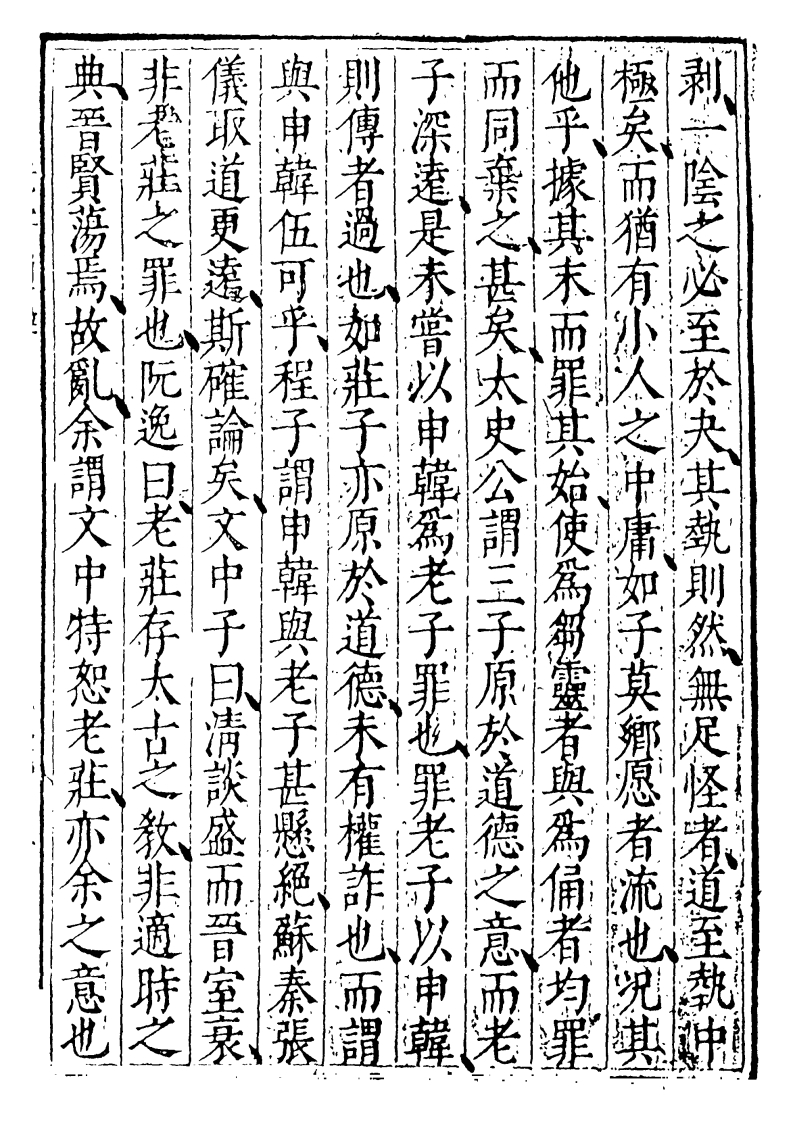 剥、一陰之必至於夬、其埶則然、無足怪者、道至埶中
極矣、而猶有小人之中庸、如子莫鄉愿者流也、况其
他乎、據其末而罪其始、使爲芻靈者與爲俑者均罪
而同棄之、甚矣、太史公謂三子原於道德之意、而老
子深遠、是未嘗以申韓爲老子罪也、罪老子以申韓、
則傳者過也、如莊子亦原於道德、未有權詐也、而謂
與申韓伍可乎、程子謂申韓與老子甚懸絕、蘇秦張
儀取道更遠、斯確論矣、文中子曰、清談盛而晉室衰、
非老莊之罪也、阮逸曰、老莊存太古之教、非適時之
典、晉賢蕩焉、故亂、余謂文中特恕老莊、亦余之意也